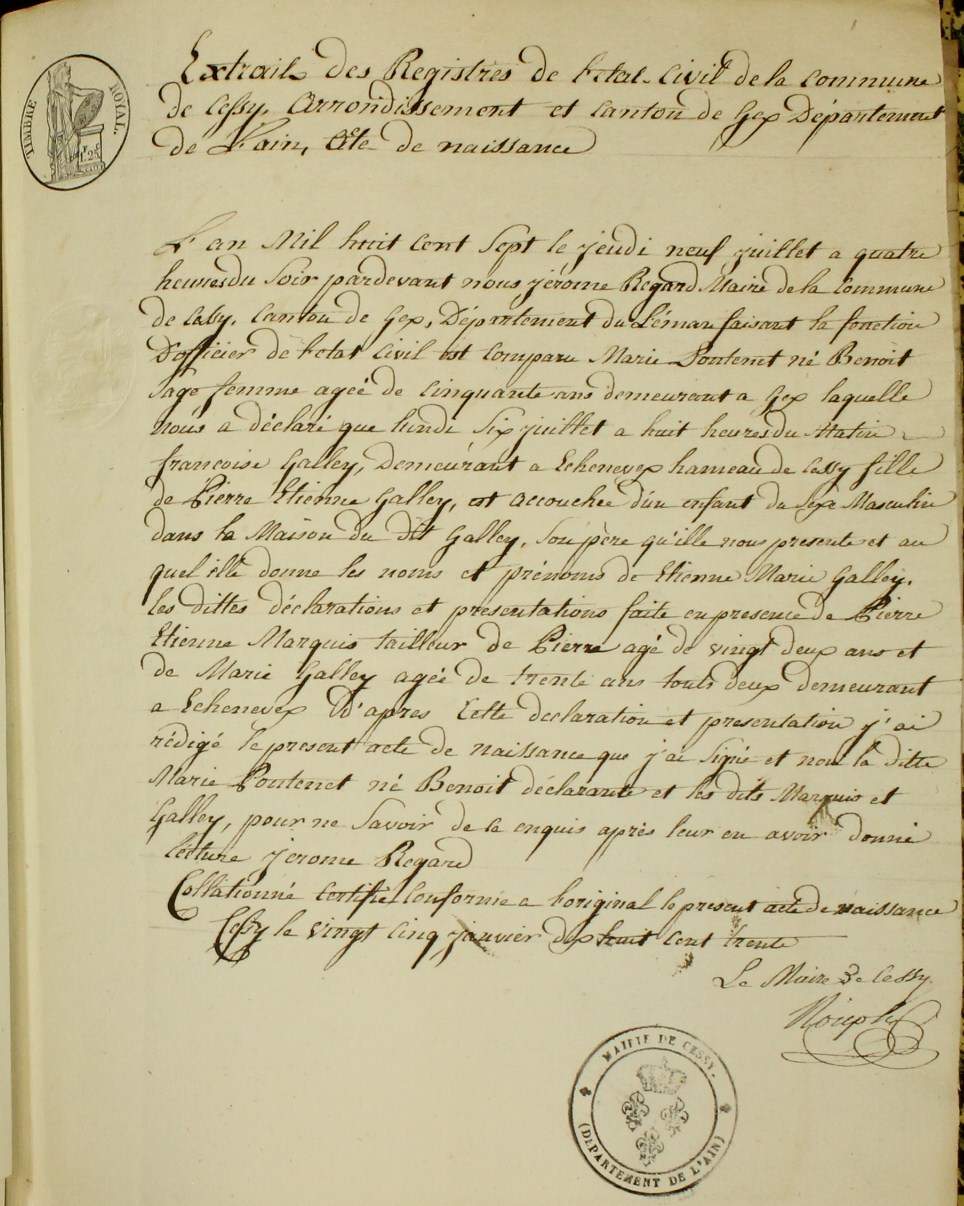 TIMBRE ROYAL.
Extrait des Registres de l'etat Civil de la commune
de Cessy, Arrondissement et canton de Gex Département
de L'ain, Acte de naissance
L'an Mil huit cent Sept le jeudi neuf juillet a quatre
heures du Soir pardevant nous jérome Regard Maire de la Commune
de Cessy, Canton de Gex, Département du Léman faisant la fonction
D'officier de l'etat Civil est Comparu Marie Pontenet né Benoit
Sage femme ageé de Cinquante ans demeurant a Gex laquelle
nous a déclaré que lundi Six juillet a huit heures du Matin
francoise Galley, Demeurant a Echenevex hameau de Cessy fille
de Pierre Etienne Galley, est accouchée d'un enfant du Sexe Masculin
dans la Maison du dit Galley, Son père qu'ille nous presente et au
quel ille donne les noms et prénoms de Etienne Marie Galley,
les dittes déclarations et presentations faite en presence de Pierre
Etienne Marquis tailleur de Pierre agé de vingt deux ans et
de Marie Galley ageé de trente ans touts deux demeurant
a Echenevex D'apres Cette declaration et presentation j'ai
rédigé le present acte de naissance que j'ai Signé et non la ditte
Marie Pontenet né Benoit déclarante et les dits Marquis et
Galley, pour ne Savoir de ce enquis après leur en avoir donné
lecture Jerome Regard
Collationné certifié Conforme a l'original le present acte de naissance
Cessy le vingt Cinq janvier dix huit cent trente
Le Maire de Cessy
MAIRIE DE CESSY.
(DEPARTEMENT DE L'AIN)